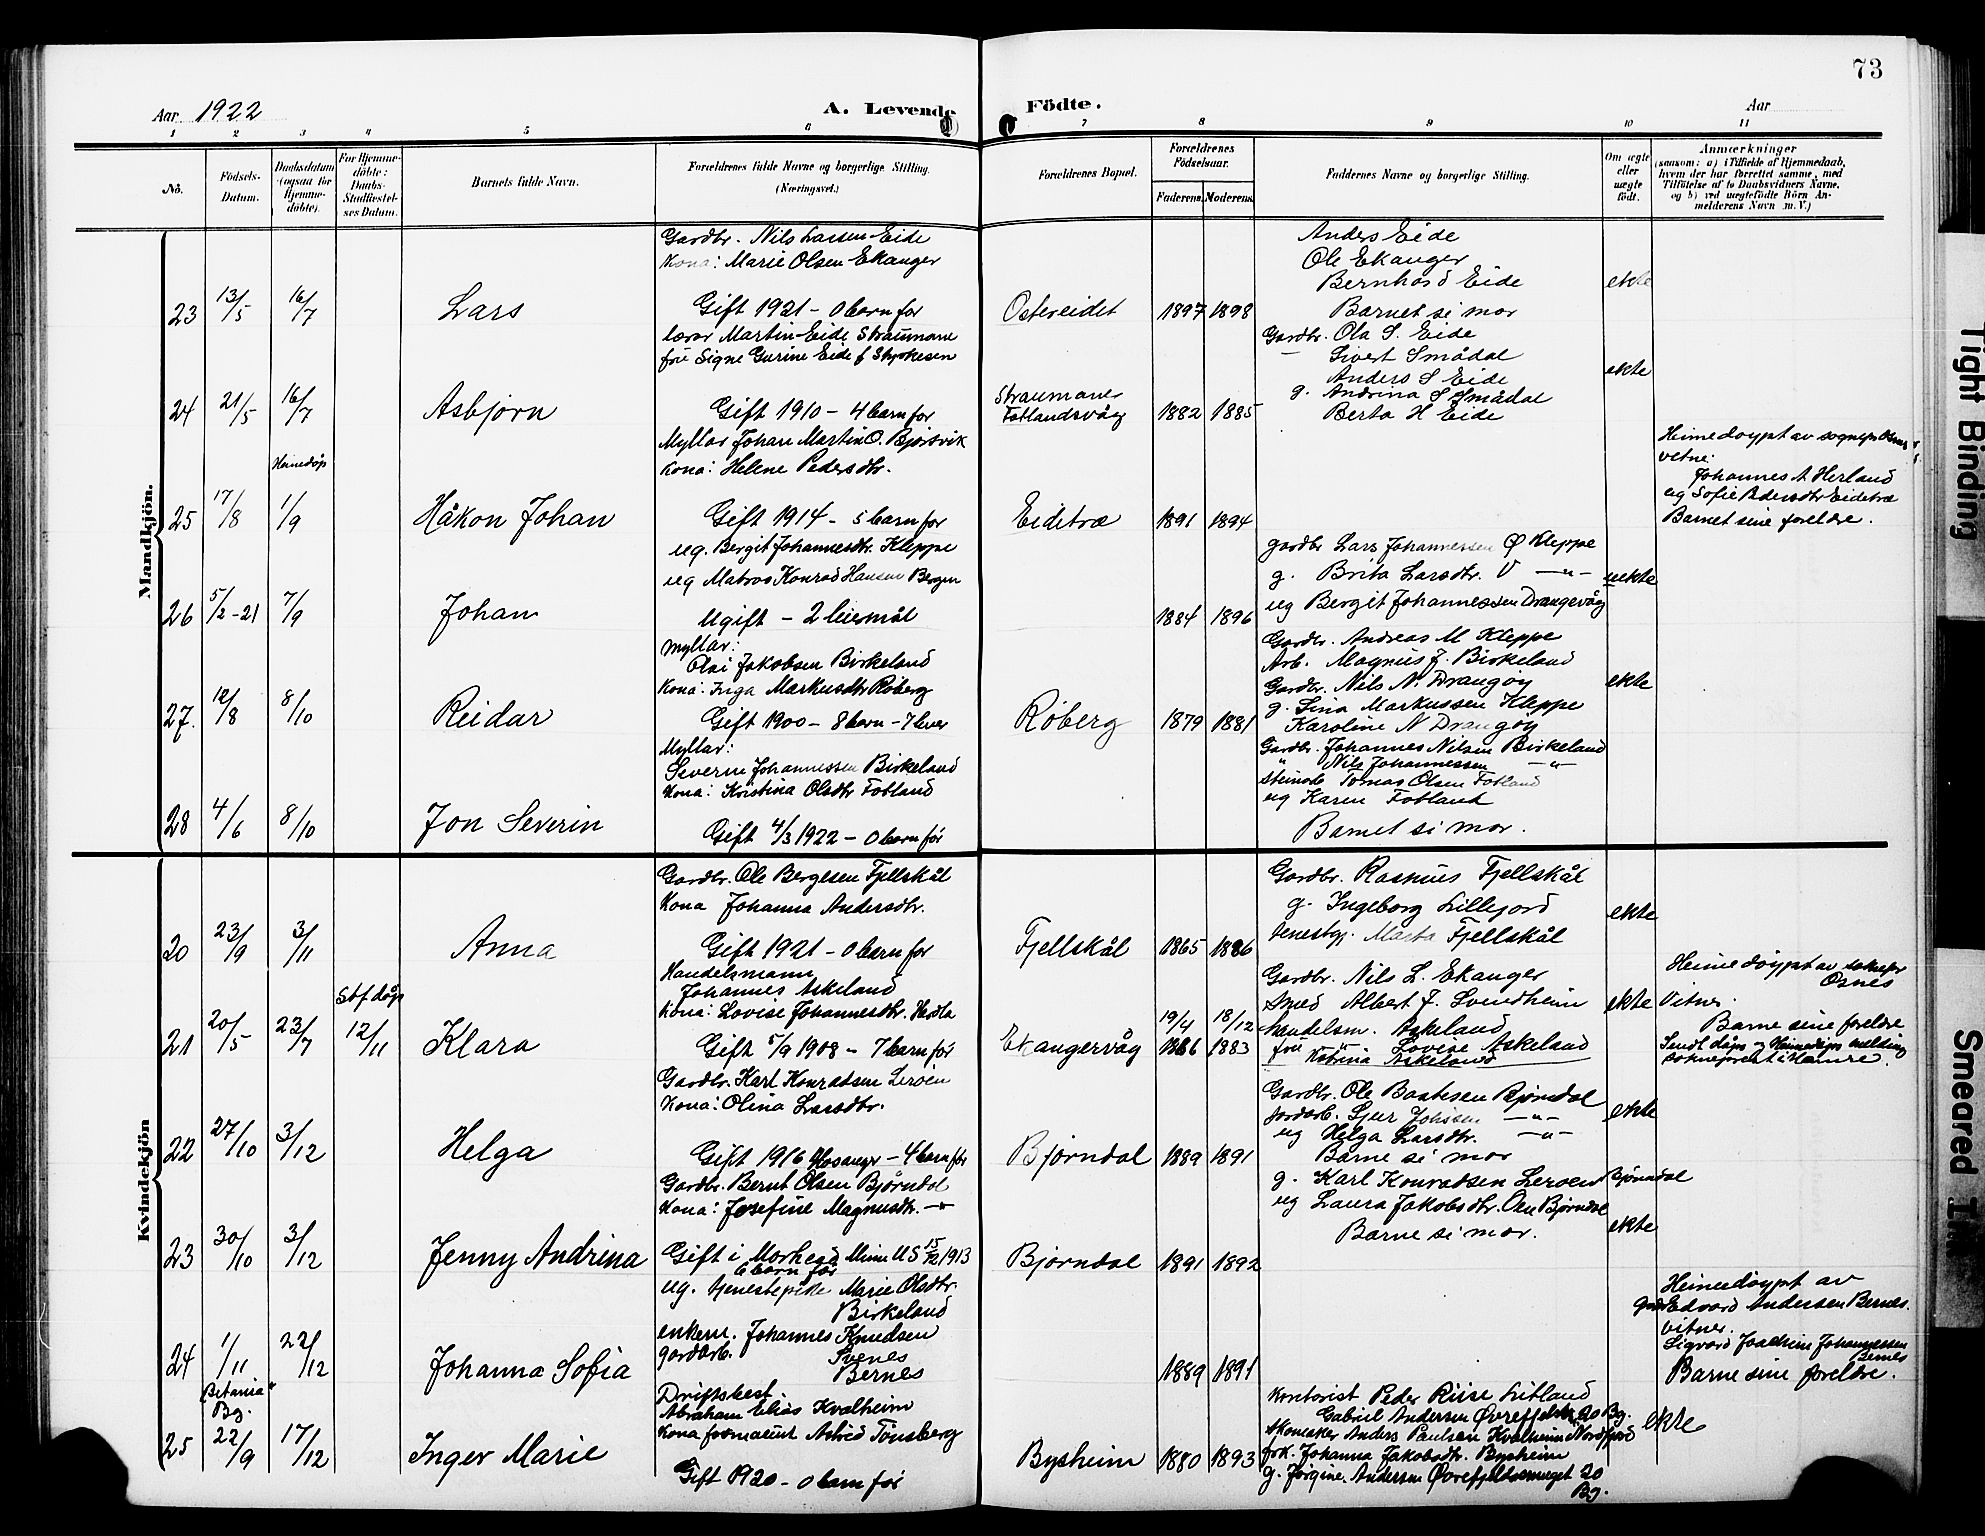 73
Aar 1922
A. Levende Födte.
Aar
1 2 3 4 5 6 7 8 9 10 11
No.
Födsels-Datum.
Daabsdatum (ogsaa for Hjemme-döbte).
For Hjemme-döbte: Daabs-Stadfæstel-ses Datum.
Barnets fulde Navn.
Forældrenes fulde Navne og borgerlige Stilling. (Næringsvei.)
Forældrenes Bopæl.
Forældrenes Födselsaar.
Faderens. Moderens.
Faddernes Navne og borgerlige Stilling.
Om ægte eller uægte födt.
Anmærkninger
(saasom: a) i Tilfælde af Hjemmedaab, hvem der har forrettet samme, med Tilföielse af to Daabsvidners Navne, og b) ved uægtefödte Börn An-melderens Navn m. V.)
Mandkjön.
Gardbr. Nils Larsen Eide
Kona: Marie Olsen Ekanger
23 13/5 16/7 Lars Gift 1921 - 0 barn før Ostereidet 1897 1898
Anders Eide
Ole Ekanger
Bernhard Eide
Barnet si mor
ekte
lærar Martin Eide Straumane
frü Signe Gurine Eide f Styrkesen
24 21/5 16/7 Asbjørn Gift 1910 - 4 barn før Straumane Fotlandsvåg 1882 1885
Gardbr. Ola S. Eide
— Sivert Smådal
Anders S Eide
g. Andrina S Smådal
Berta H Eide
ekte
Myllar Johan Martin O. Bjørsvik
Kona: Helene Pedersdtr.
Heimedøp
25 17/8 1/9 Håkon Johan Gift 1914 - 5 barn før Eidetræ 1891 1894
Heimedøypt av sognepr Osnes
vitne:
Johannes A Herland
og Sofie Pedersdtr Eidetræ
Barnet sine foreldre.
ug. Bergit Johannesdtr. Kleppe
ug Matros Konrad Hansen Bergen
26 5/2-21 7/9 Johan Ugift - 2 leiermål 1884 1896
gardbr Lars Johannessen Ø Kleppe
g. Brita Larsdtr. V —"—
ug Bergit Johannessen Drangevåg
uekte
Myllar:
Olai Jakobsen Birkeland
Kona: Inga Markusdtr Røberg
27. 12/8 8/10 Reidar Gift 1900 - 8 barn - 7 lever Røberg 1879 1881
Gardbr. Andreas M Kleppe
Arb. Magnus J. Birkeland
Gardbr. Nils N. Drangøy
g. Sina Markussen Kleppe
Karoline N Drangøy
ekte
Myllar:
Severin Johannessen Birkeland
Kona: Kristina Olsdtr Fotland
28 4/6 8/10 Jon Severin Gift 4/3 1922 - 0 barn før
Gardbr. Johannes Nilsen Birkeland
" Nils Johannessen —"—
Tomas Olsen Fotland
ug Karen Fotland
Barnet si mor.
Kvindekjön
Gardbr. Ole Bergesen Fjellskål
Kona Johanna Andersdtr.
20 23/9 3/11 Anna Gift 1921 - 0 barn før Fjellskål 1865 1886
Gardbr. Rasmus Fjellskål
g. Ingeborg Lillejord
tenestgj. Marta Fjellskål
ekte
Handelsmann
Johannes Askeland
Kona: Lovise Johannesdtr. Hodla
Stf døp
21 20/5 23/7 12/11 Klara Gift 5/9 1908 - 7 barn før Ekangervåg 19/4 1886 18/12 1883
Gardbr. Nils L. Ekanger
Smed Albert J. Svendheim
Handelsm. Askeland
frü Lovise Askeland
" Katrina Askeland
ekte
Heime døypt av soknepr Osnes
Vitner:
Barne sine foreldre
Sendt døps og Heimedøps melding
soknepresten i Hamre.
Gardbr. Karl Konradsen Lerøen
Kona: Olina Larsdtr.
22 27/10 3/12 Helga Gift 1916 Hosanger - 4 barn før Bjørndal 1889 1891
Gardbr. Ole Baatesen Bjørndal
jordarb. Sjur Johnsen —"—
ug Helga Larsdtr. —"—
Barne si mor
ekte
Gardbr. Bernt Olsen Bjørndal
Kona: Josefine Magnusdtr. —"—
23 30/10 3/12 Jenny Andrina Gift i Morhead Minn US 15/12 1913
6 barn før
Bjørndal 1891 1892
g. Karl Konradsen Lerøen Bjørndal
ug Laura Jakobsdtr. Osen Bjørndal
Barne si mor.
ekte
ug. tjenestepike Marie Olsdtr. Birkeland
enkem. Johannes Knudsen
gardarb. Svenes
Bernes
24 1/11 22/12 Johanna Sofia 1889 1891
Heimedøypt av
Gardbr Edvard Andersen Bernes.
vitner.
Sigvard Joachim Johannessen Bernes
Barne sine foreldre.
Betania Bg.
Driftsbest.
Abraham Elias Kvalheim
Kona Astrid Tönsberg
25 22/9 17/12 Inger Marie Gift 1920 - 0 barn før Bysheim 1880 1893
Kontorist Peder Riise Litland
Gabriel Andersen Øvrefjellsk 20 Bg.
Skomaker Anders Paulsen Kvalheim Nordfjord
frk. Johanna Jakobsdtr. Bysheim
g. Jørgine Andersen 20 Bg.
ekte
Tight Binding
Smeared Ink